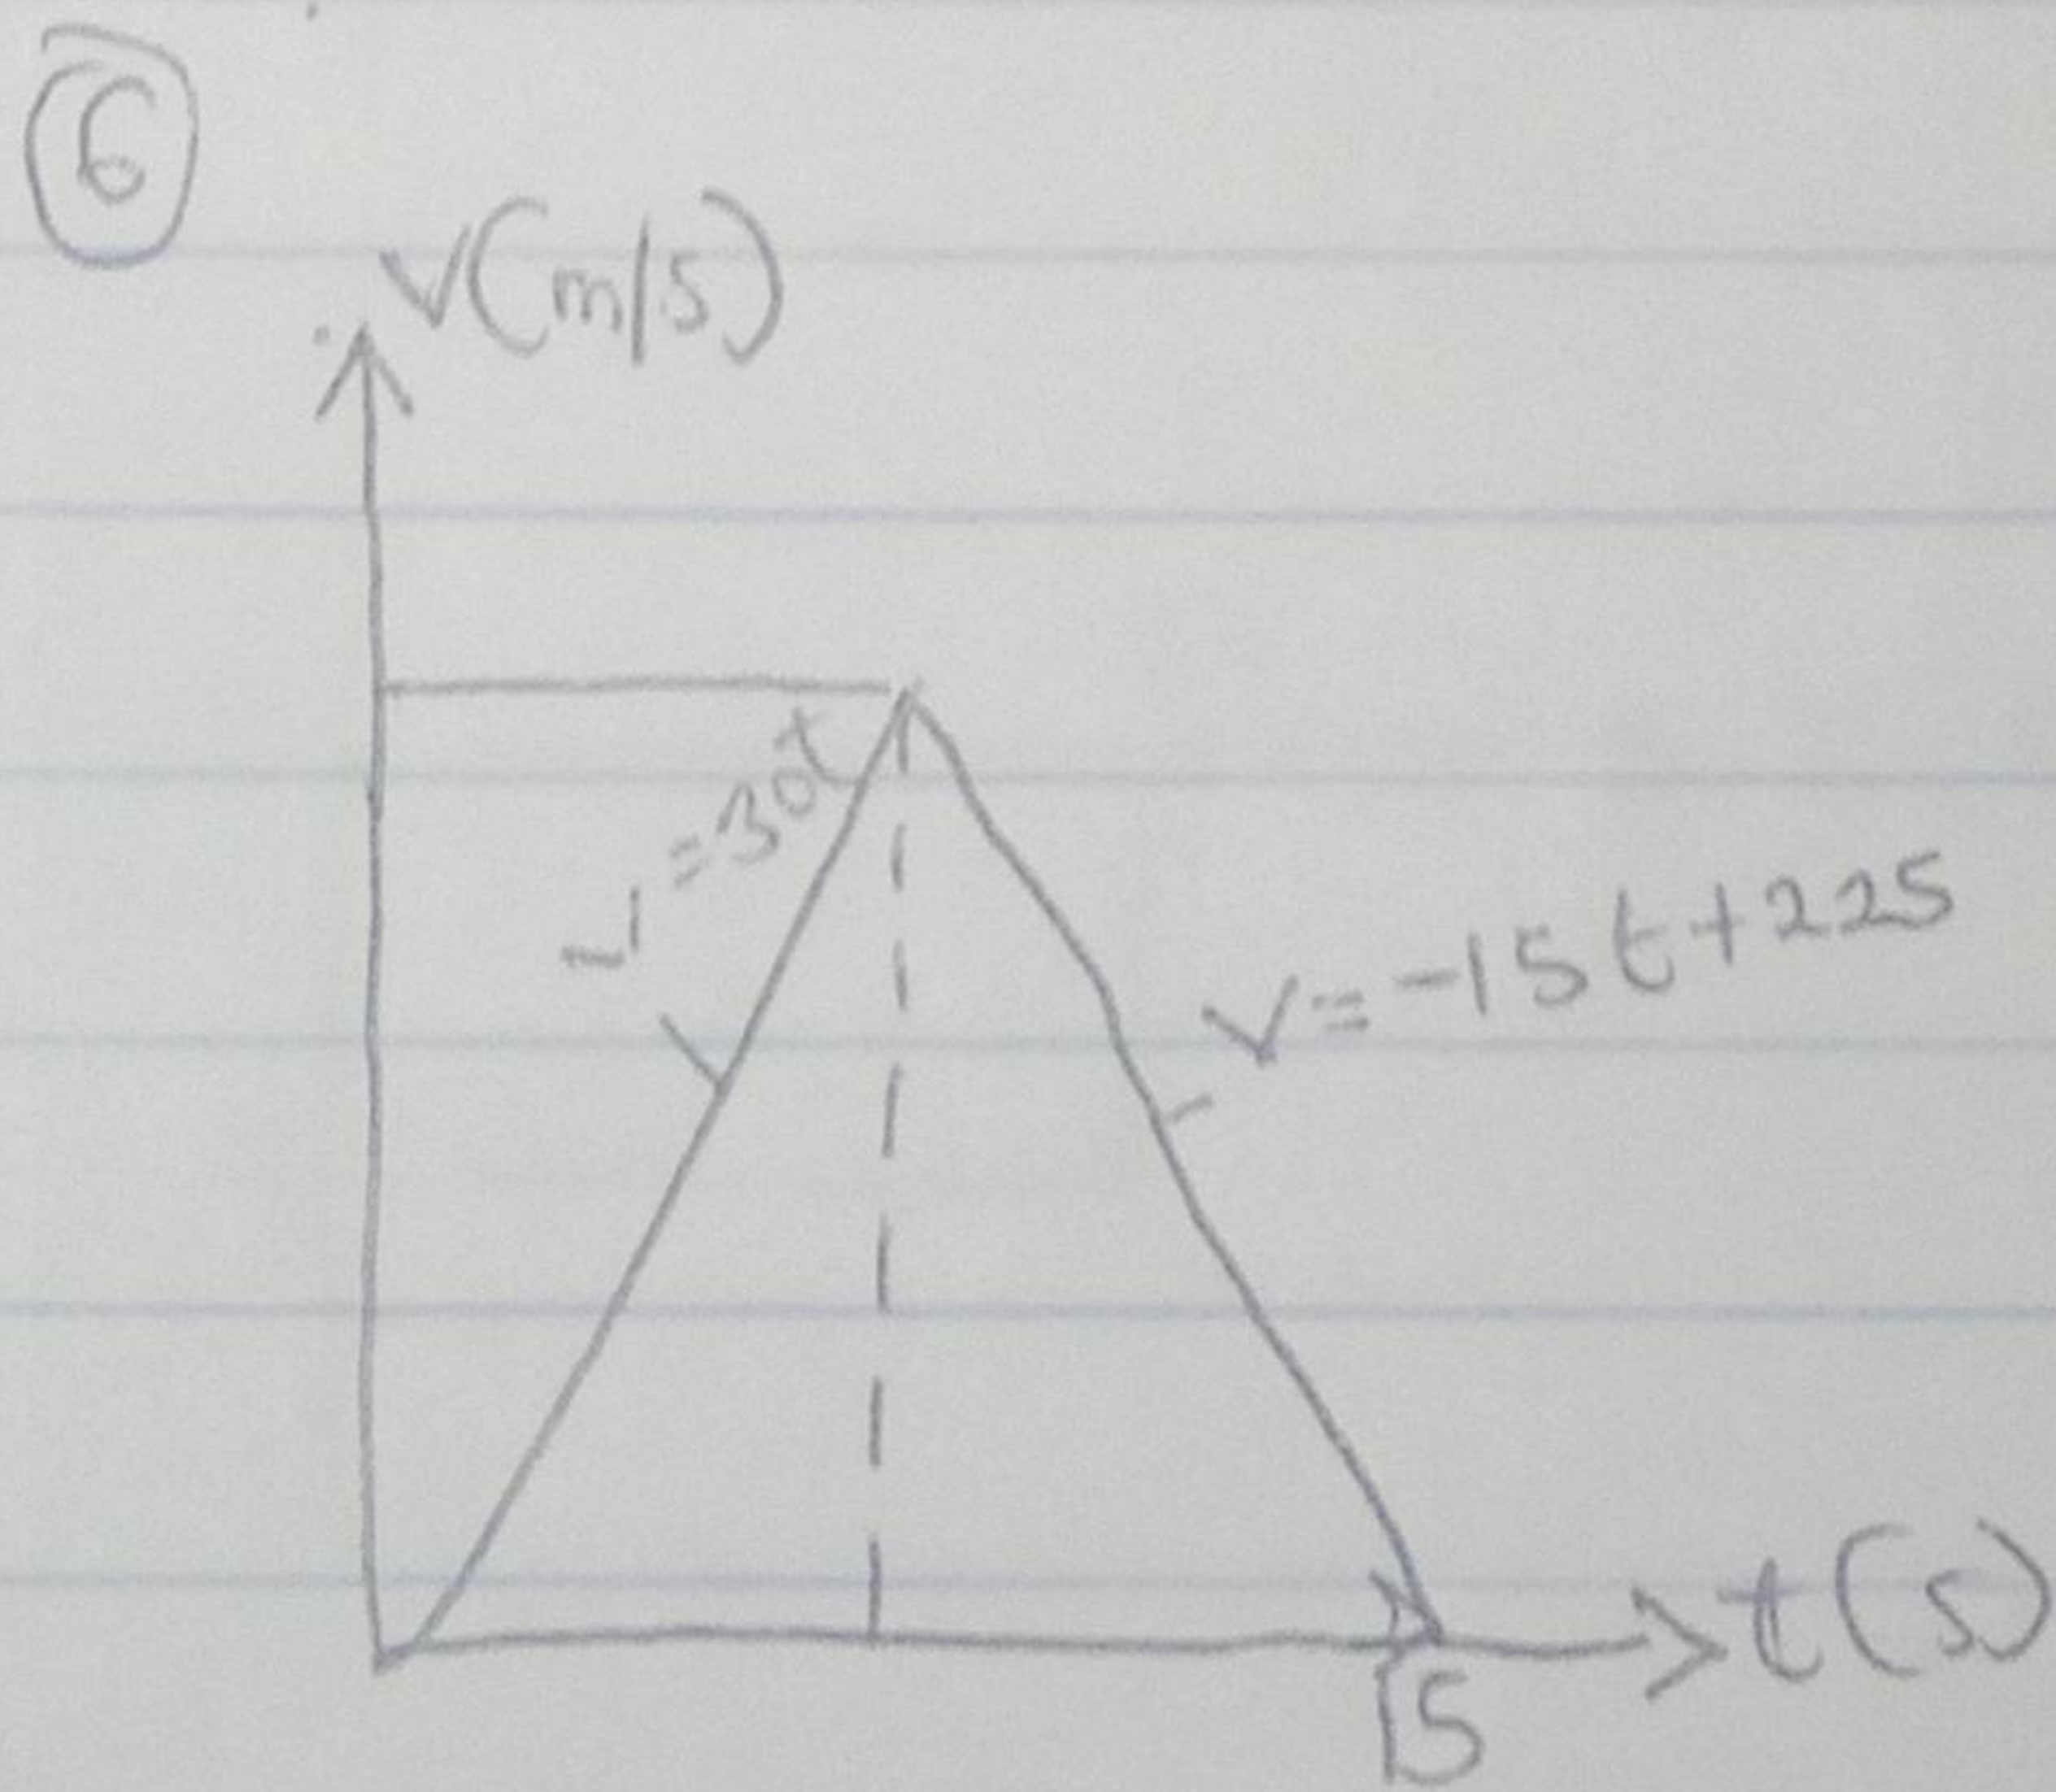 6
v(m/s)
v=30t
v=-15t+225
15
t(s)